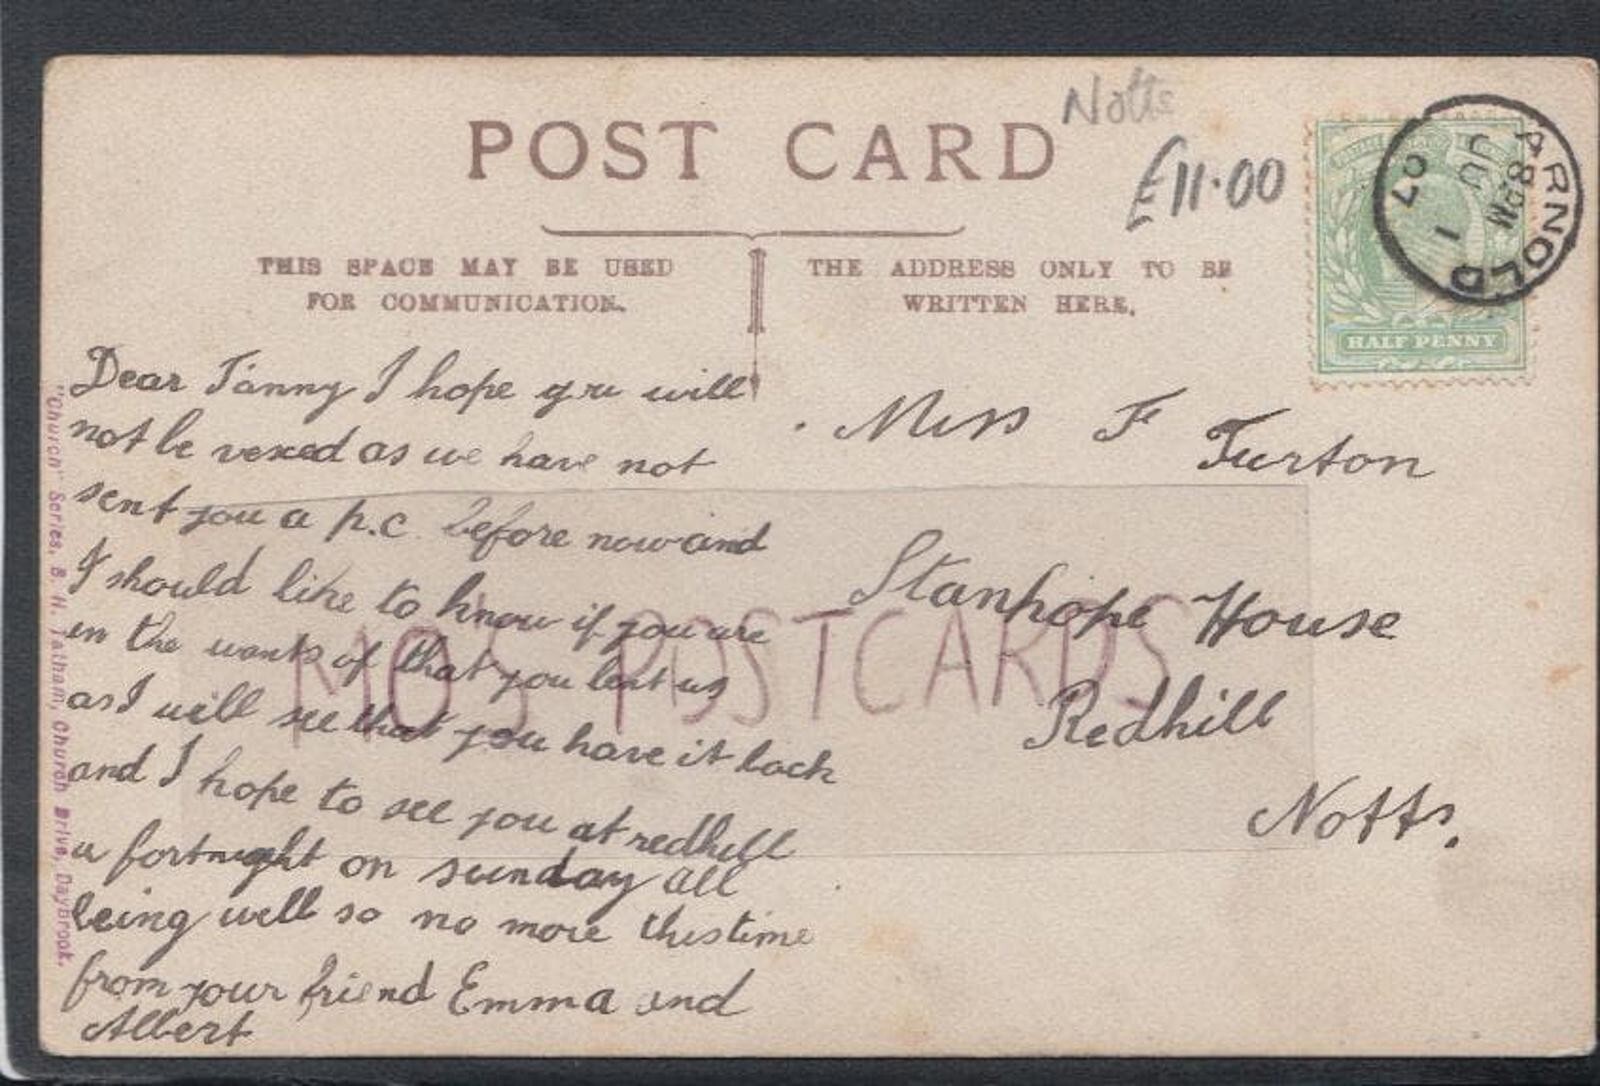 Notts
POST CARD
£11.00
ARNOLD
8 PM
JU 1
07
HALF PENNY
THIS SPACE MAY BE USED
FOR COMMUNICATION.
THE ADDRESS ONLY TO BE
WRITTEN HERE.
Dear Fanny I hope you will
not be vexed as we have not
sent you a p.c. before now and
I should like to know if you are
in the wants of that you lent us
as I will see that you have it back
and I hope to see you at redhill
a fortnight on sunday all
being well so no more this time
from your friend Emma and
Albert
Miss F Turton
Stanhope House
Redhill
Notts.
"Church" Series. B. H. Tatham, Church Drive, Daybrook.
MO'S POSTCARDS